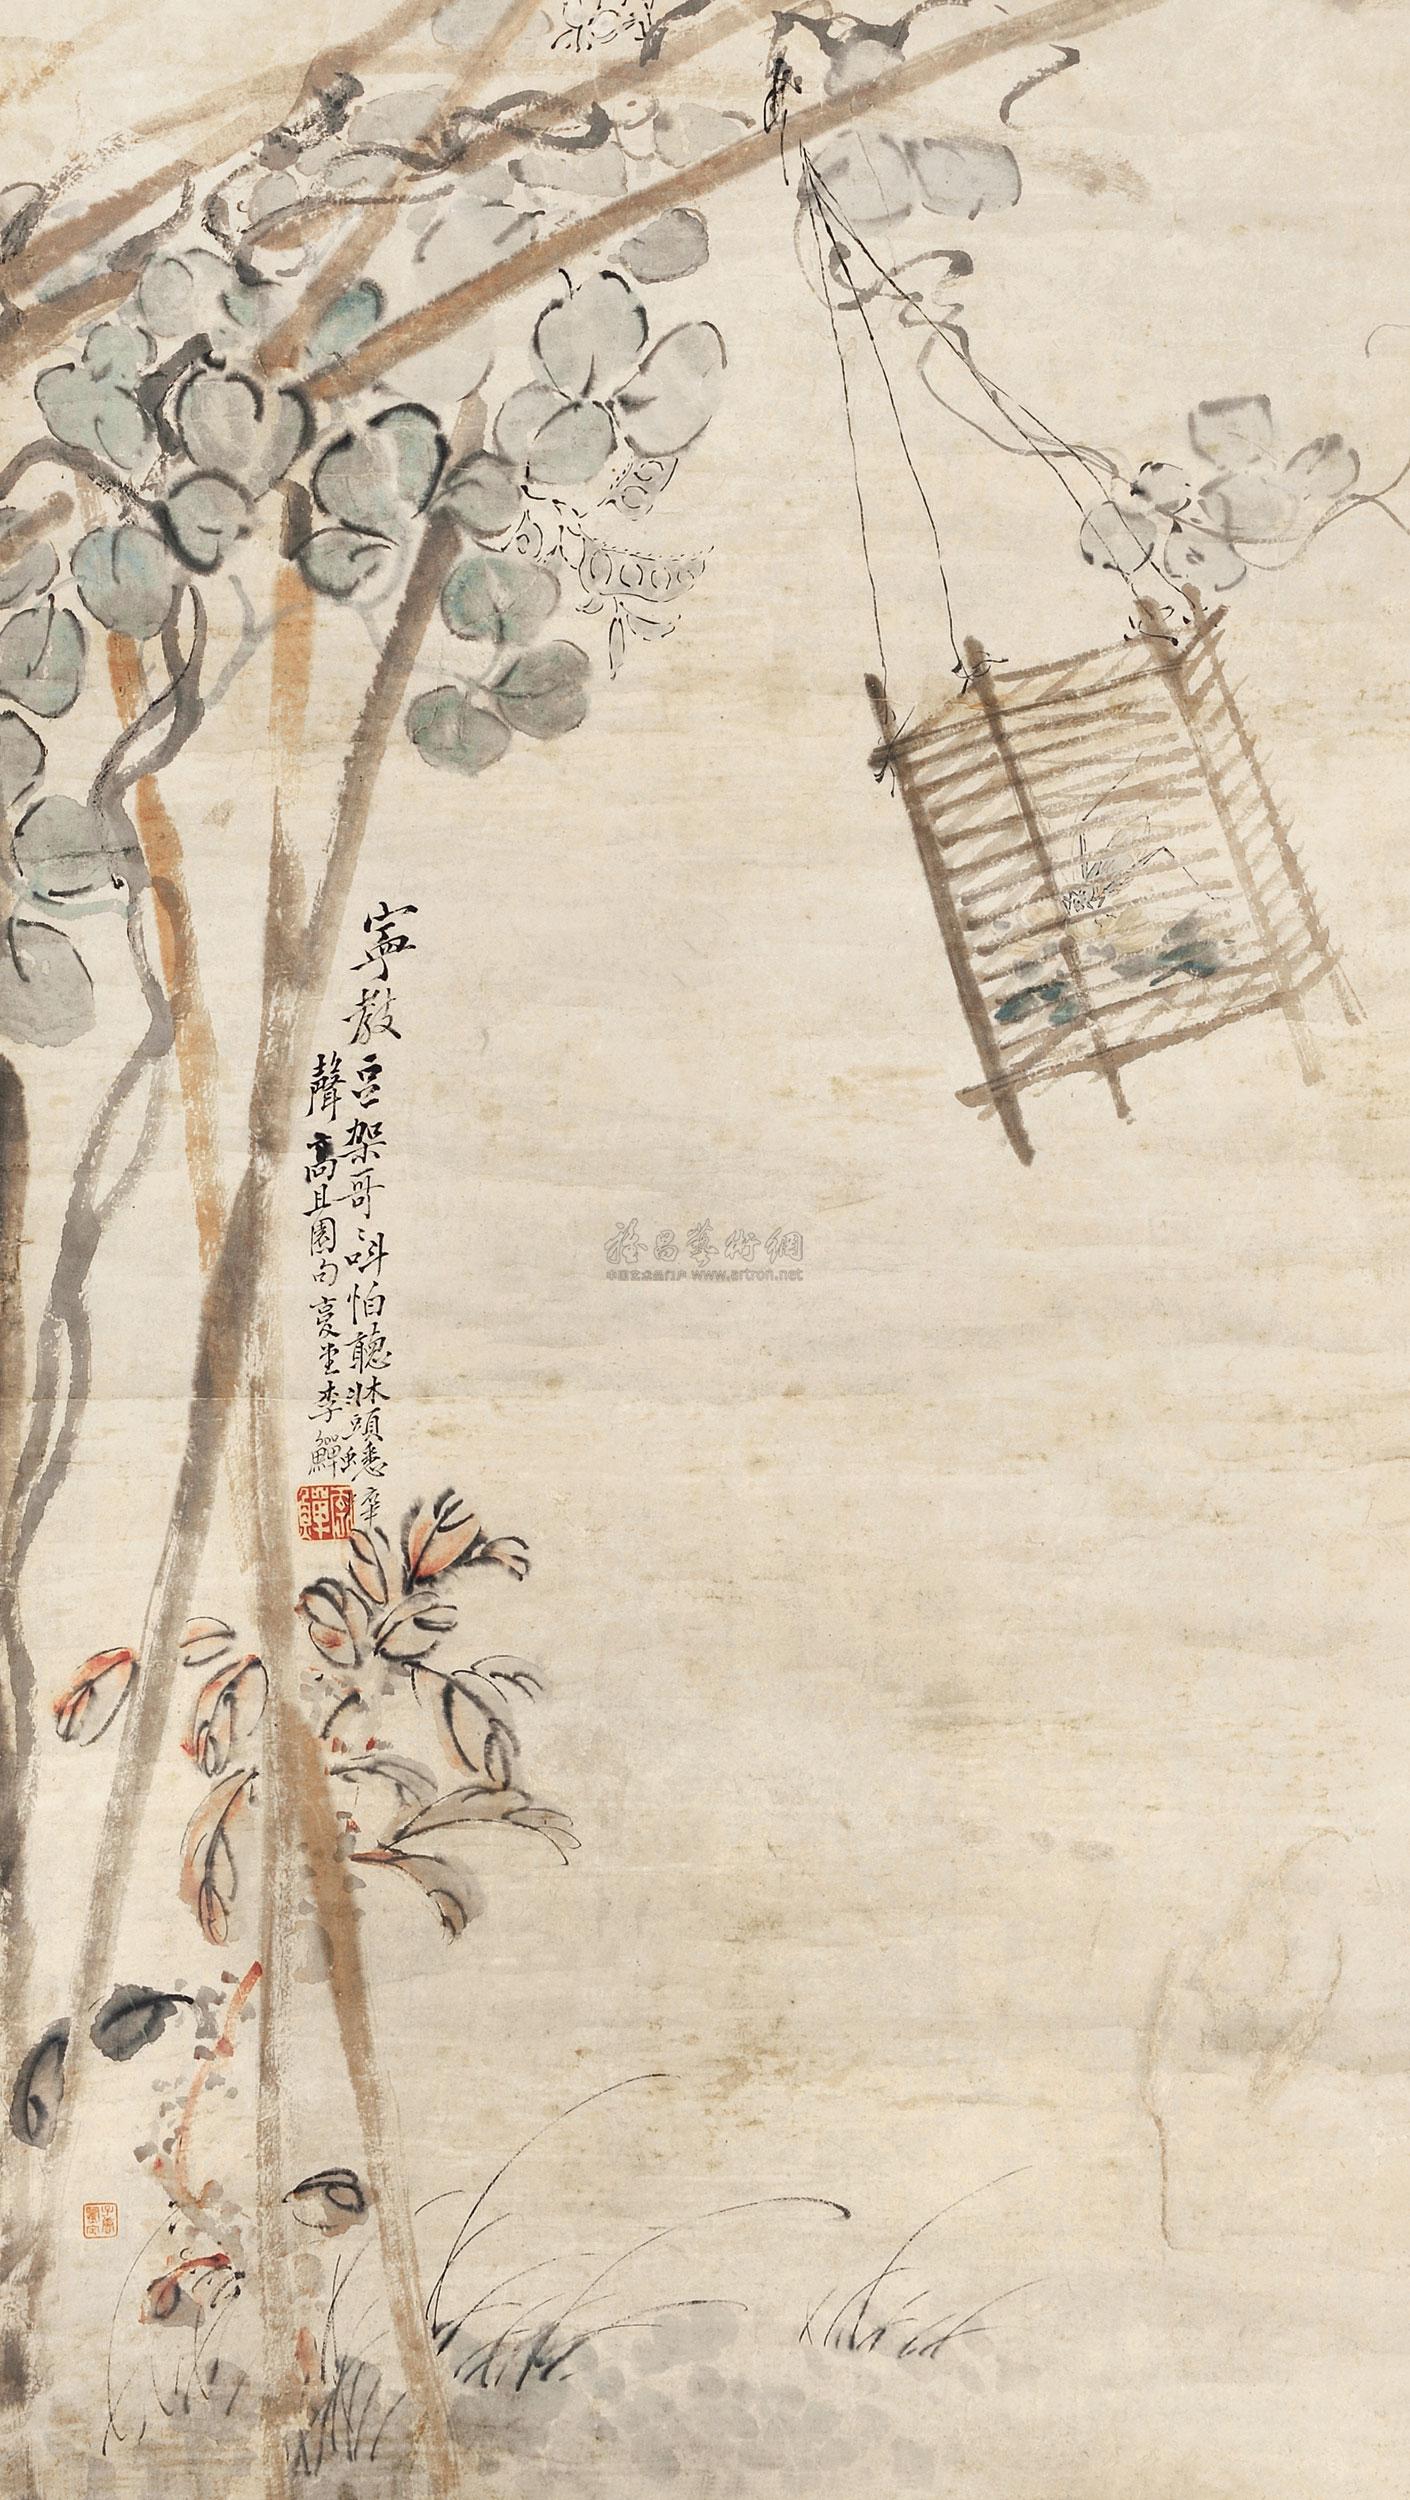 寧教豆架哥〻呌怕聽牀頭蟋蟀
聲高且園句復堂李鱓
雅昌藝術網
中国艺术品门户 www.artron.net